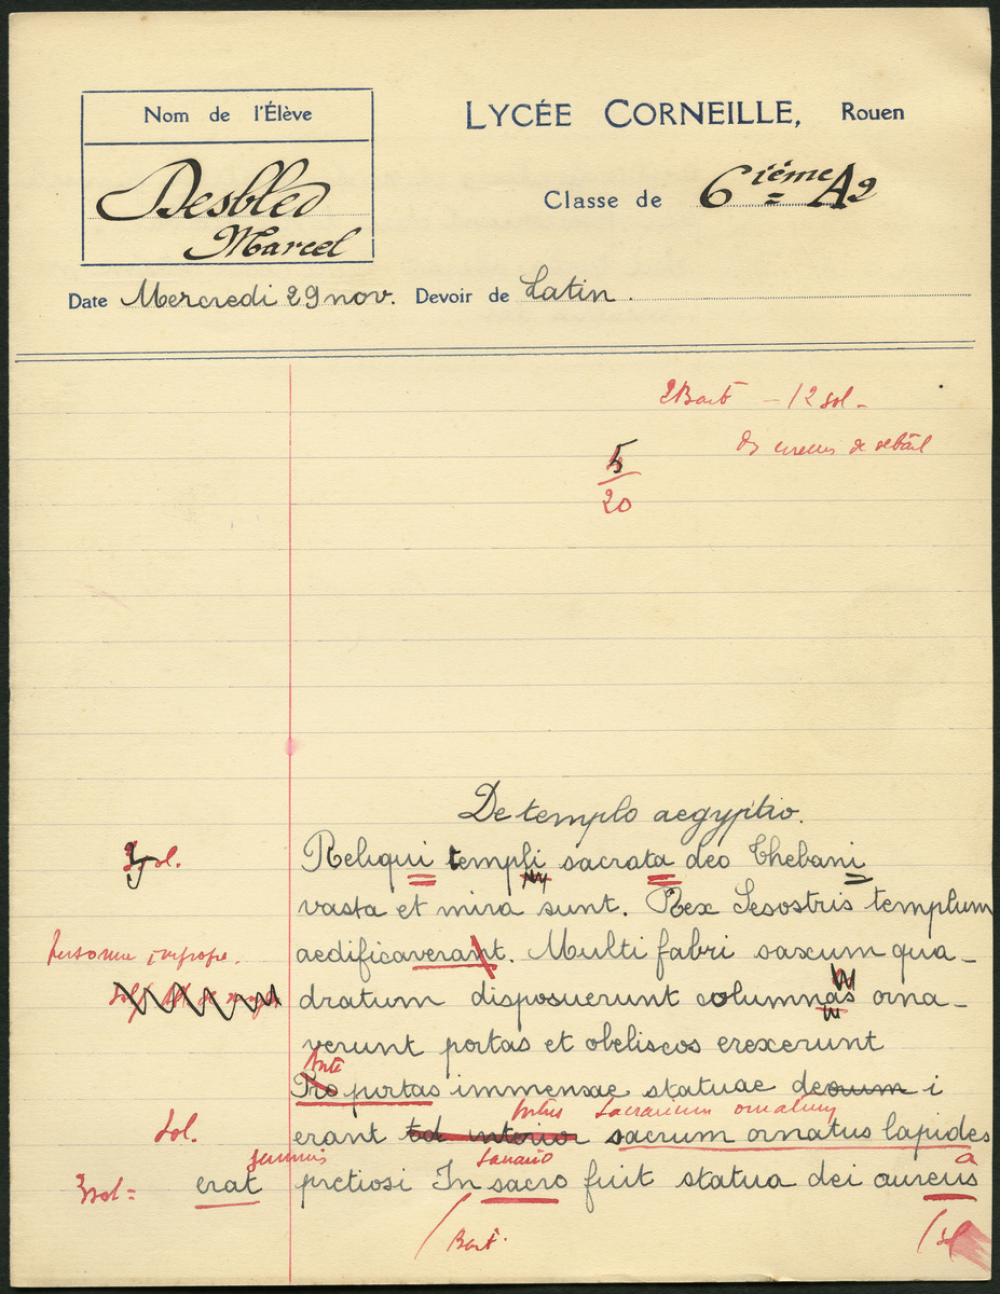 Nom de l'Élève
LYCÉE CORNEILLE, Rouen
Desbled
Marcel
Classe de 6ième A2
Date Mercredi 29 nov. Devoir de Latin.
2 Barb - 12 sol -
de détail
5
20
De templo aegyptio.
sol. Reliqui templi sacrata deo Thebani
vasta et mira sunt. Rex Sesostris templum
aedificaverant. Multi fabri saxum qua-
dratum disposuerunt columnas orna-
verunt portas et obeliscos erexerunt
Ante
Pro portas immensae statuae deorum i
intus sacrarium ornatum
Sol. erant interior sacrum ornatus lapides
gemmis a
3 sol = erat pretiosi In sacro fuit statua dei aureus
Barb. sol